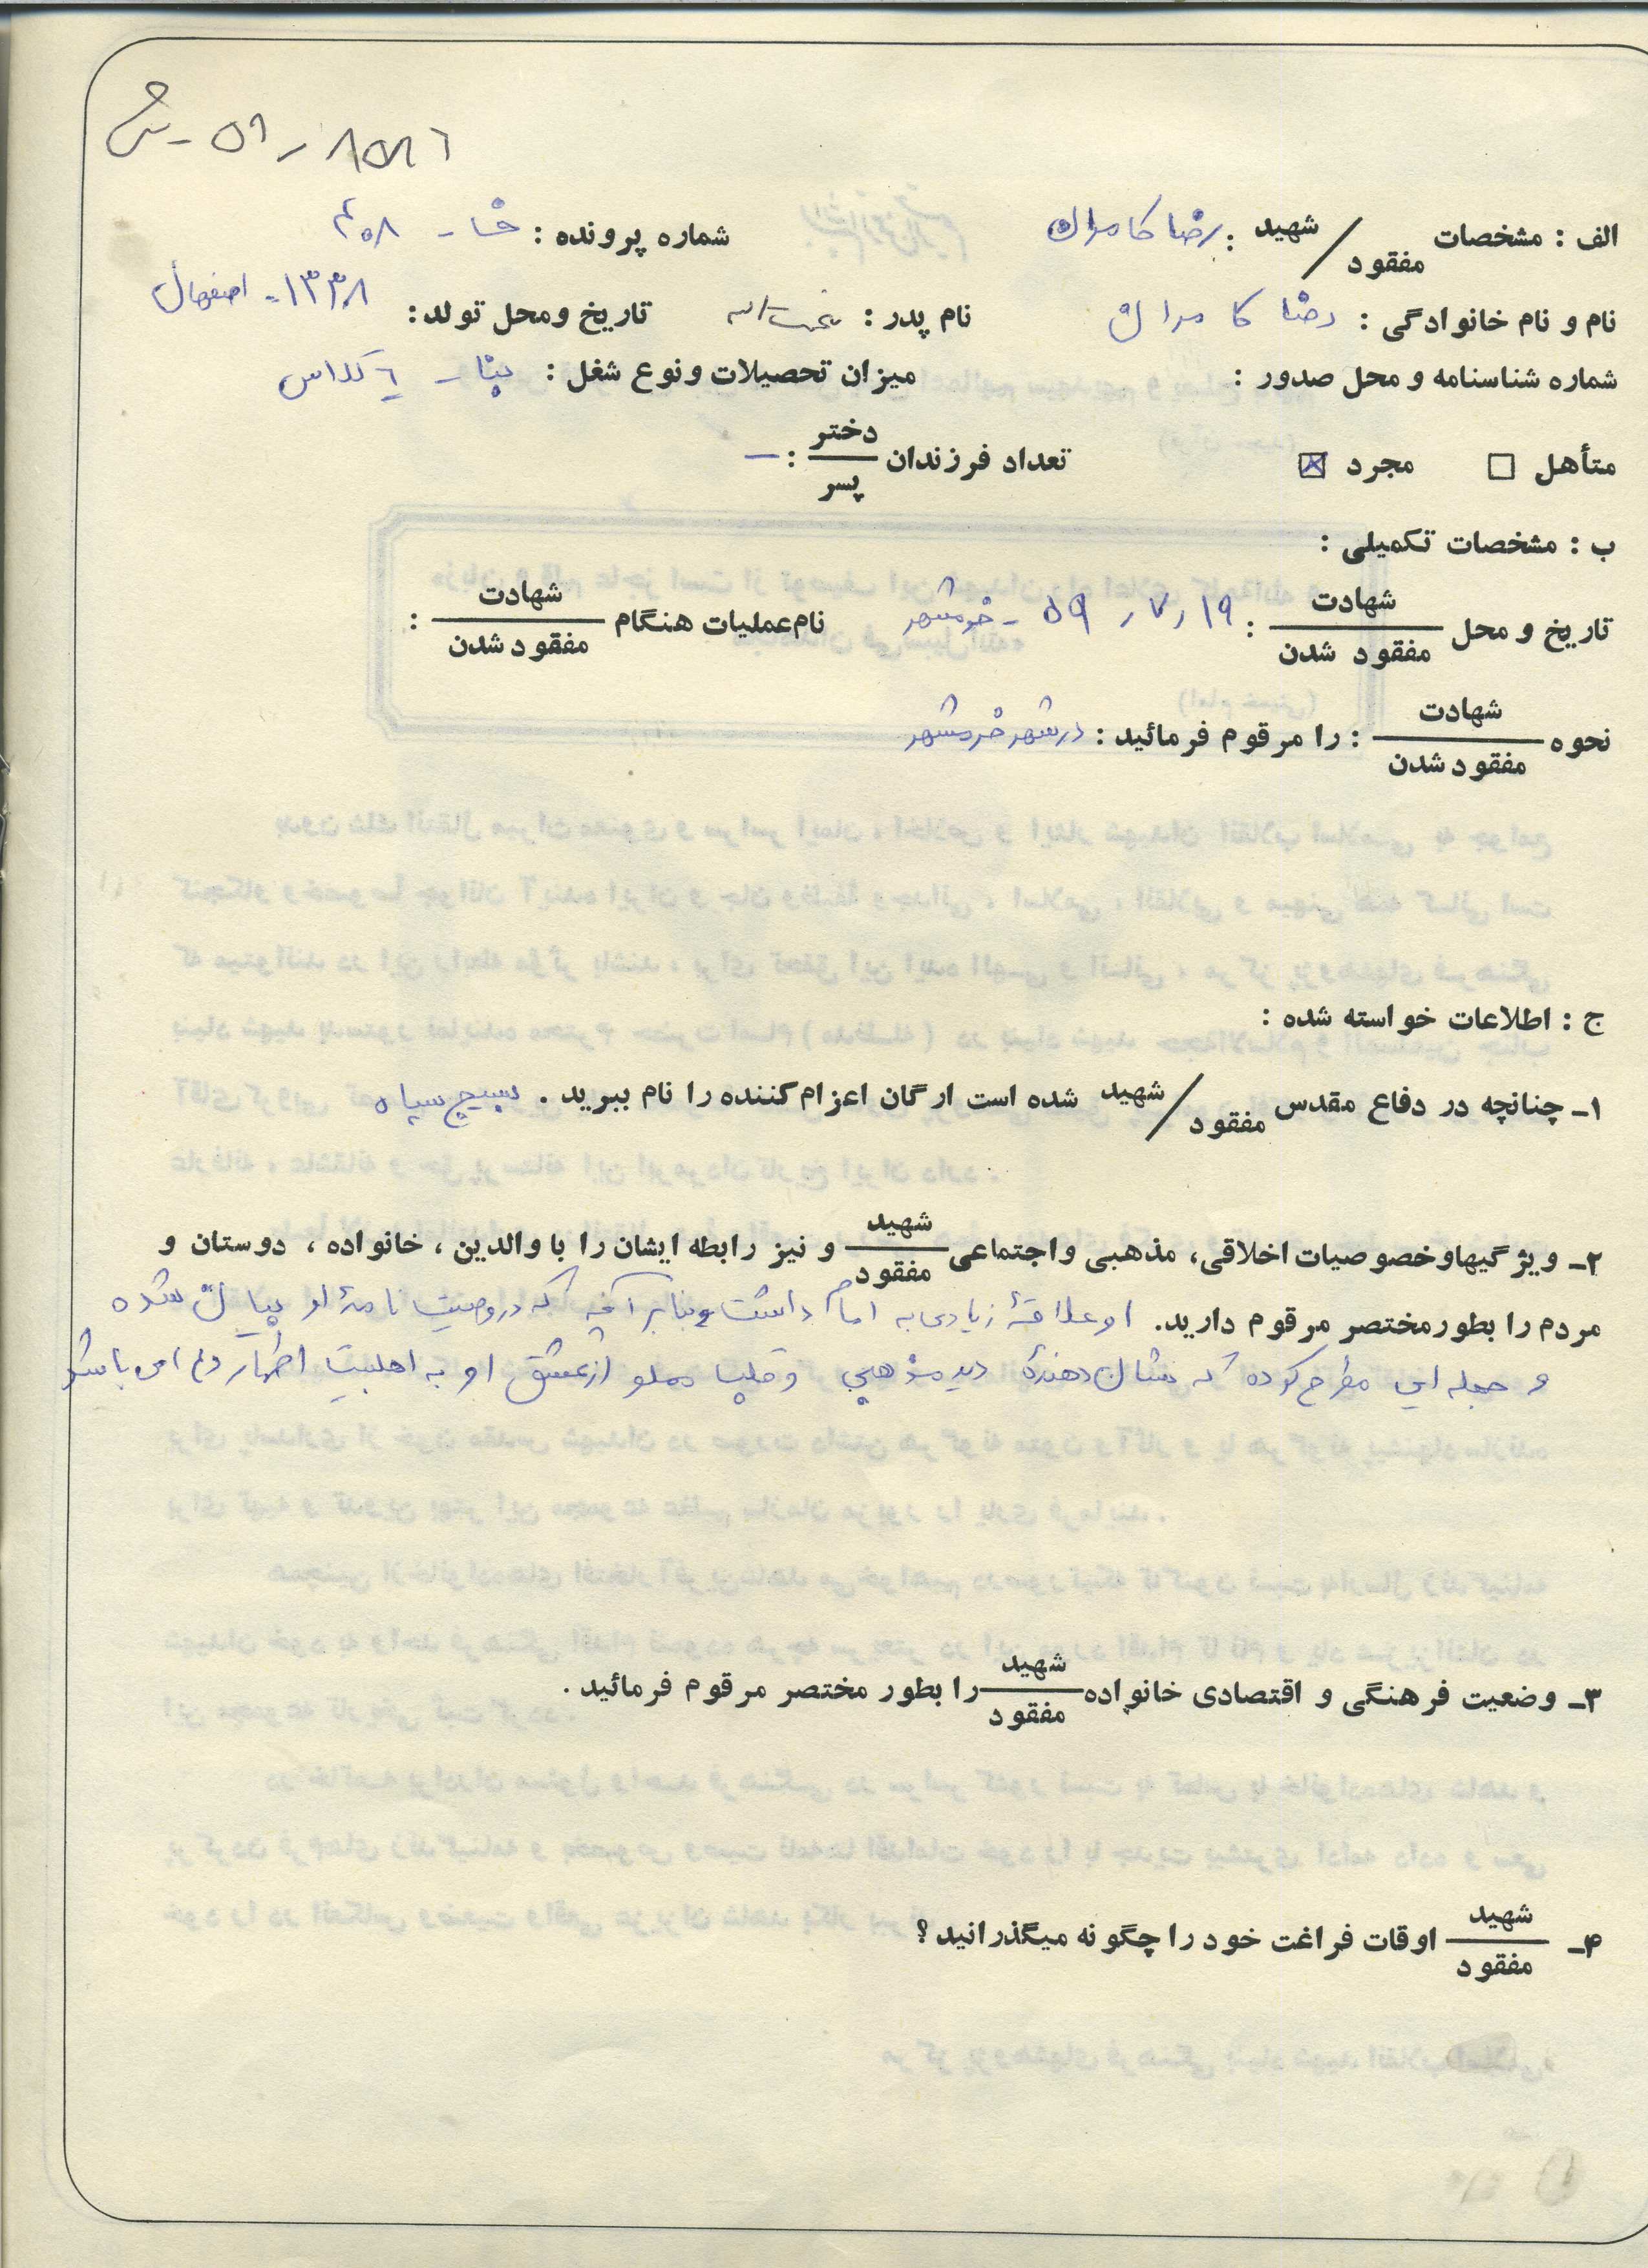 ۵۹ - ش
الف : مشخصات شهید / مفقود : رضا کامران شماره پرونده : خا - ۴۰۸
نام و نام خانوادگی : رضا کامران نام پدر : نعمت اله تاریخ ومحل تولد : ۱۳۳۸ - اصفهان
شماره شناسنامه و محل صدور : میزان تحصیلات ونوع شغل : بنا - ۶ کلاس
متأهل ☐ مجرد ☒ تعداد فرزندان دختر / پسر : —
ب : مشخصات تکمیلی :
تاریخ و محل شهادت / مفقود شدن : ۱۹ ر ۷ ر ۵۹ - خرمشهر نام عملیات هنگام شهادت / مفقود شدن :
نحوه شهادت / مفقود شدن : را مرقوم فرمائید : در شهر خرمشهر
ج : اطلاعات خواسته شده :
۱- چنانچه در دفاع مقدس شهید / مفقود شده است ارگان اعزام کننده را نام ببرید . بسیج سپاه
۲- ویژگیها وخصوصیات اخلاقی، مذهبی واجتماعی شهید / مفقود و نیز رابطه ایشان را با والدین ، خانواده ، دوستان و
مردم را بطور مختصر مرقوم دارید. او علاقهٔ زیادی به امام داشت و بنابر آنچه که در وصیت نامهٔ او بیان شده
و جمله ای مطرح کرده که نشان دهندهٔ دید مذهبی و قلب مملو از عشق او به اهلبیت اطهار و امام می باشد
۳- وضعیت فرهنگی و اقتصادی خانواده شهید / مفقود را بطور مختصر مرقوم فرمائید .
۴- شهید / مفقود اوقات فراغت خود را چگونه میگذرانید ؟